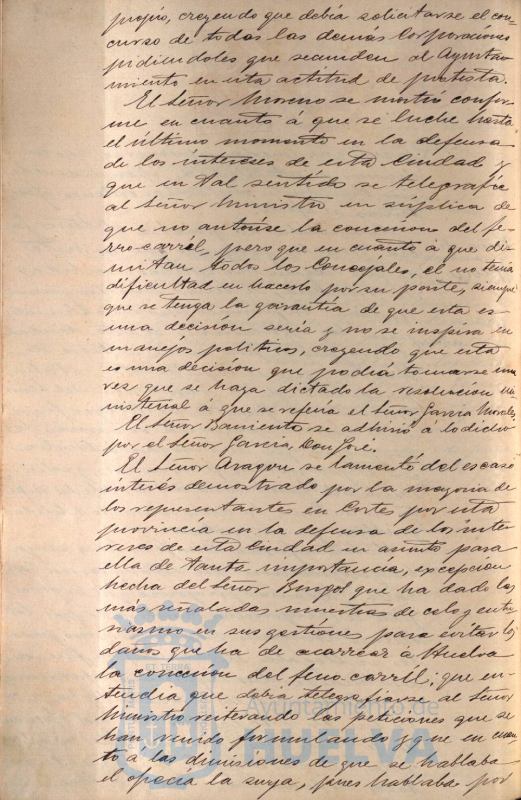 propio, creyendo que debía solicitarse el con-
curso de todas las demas Corporaciones
pidiendoles que secunden al Ayunta-
miento en esta actitud de protesta.
El Señor Moreno se mostró confor-
me en cuanto á que se luche hasta
el último momento en la defensa
de los intereses de esta Ciudad y
que en tal sentido se telegrafíe
al Señor Ministro en súplica de
que no autorice la concesion del fe-
rro-carril, pero que en cuanto á que di-
mitan todos los Concejales, el no tenia
dificultad en hacerlo por su parte, siempre
que se tenga la garantía de que esta es
una decisión seria y no se inspira en
manejos politicos, creyendo que esta
es una decisión que podria tomarse una
vez que se haya dictado la resolución mi-
nisterial á que se referia el Señor Garcia Morales.
El Señor Barriento se adhirió á lo dicho
por el Señor Garcia, Don José.
El Señor Aragon se lamentó del escaso
interés demostrado por la mayoria de
los representantes en Cortes por esta
provincia en la defensa de los inte-
reses de esta Ciudad en asunto para
ella de tanta importancia, excepcion
hecha del Señor Burgos que ha dado las
más señaladas muestras de celo y entu-
siasmo en sus gestiones para evitar los
daños que ha de acarrear á Huelva
la concesion del ferro-carril; que en-
tendia que debia telegrafiarse al Señor
Ministro reiterando las peticiones que se
han venido formulando y que en cuan-
to a las dimisiones de que se hablaba
el ofrecía la suya, pues hablaba por
Ayuntamiento de
HUELVA